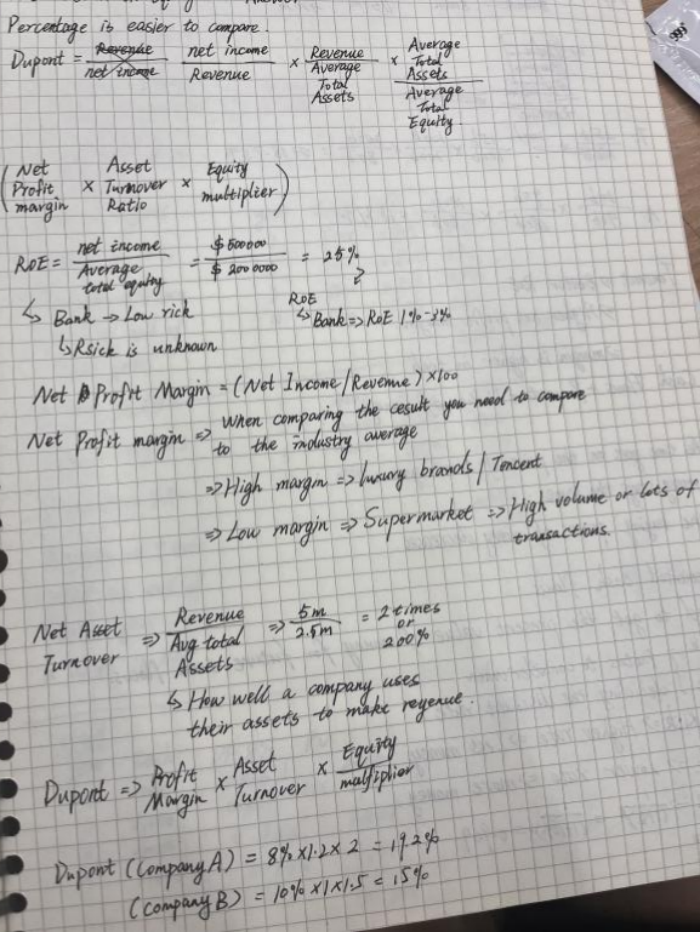 Percentage is easier to compare.
Dupont = Revenue / net income net income / Revenue × Revenue / Average Total Assets × Average Total Assets / Average Total Equity.
(Net Profit margin × Asset Turnover Ratio × Equity multiplier)
ROE = net income / Average total equity = $500000 / $2000000 = 25%
?
↳ Bank → Low rick
↳ Rsick is unknown
ROE
↳ Bank => ROE 1%-3%
Net Profit Margin = (Net Income/Revenue) ×100
Net Profit margin => When comparing the cesult you need to compare
to the industry average
=> High margin => luxury brands / Tencent
=> Low margin => Supermarket => High volume or lots of
transactions.
Net Asset Turnover => Revenue / Avg total Assets => 5m / 2.5m = 2 times or 200%
↳ How well a company uses
their assets to make revenue.
Dupont => Profit Margin × Asset Turnover × Equity multiplier
Dupont (Company A) = 8% × 1.2 × 2 = 19.2%
(Company B) = 10% × 1 × 1.5 = 15%
999